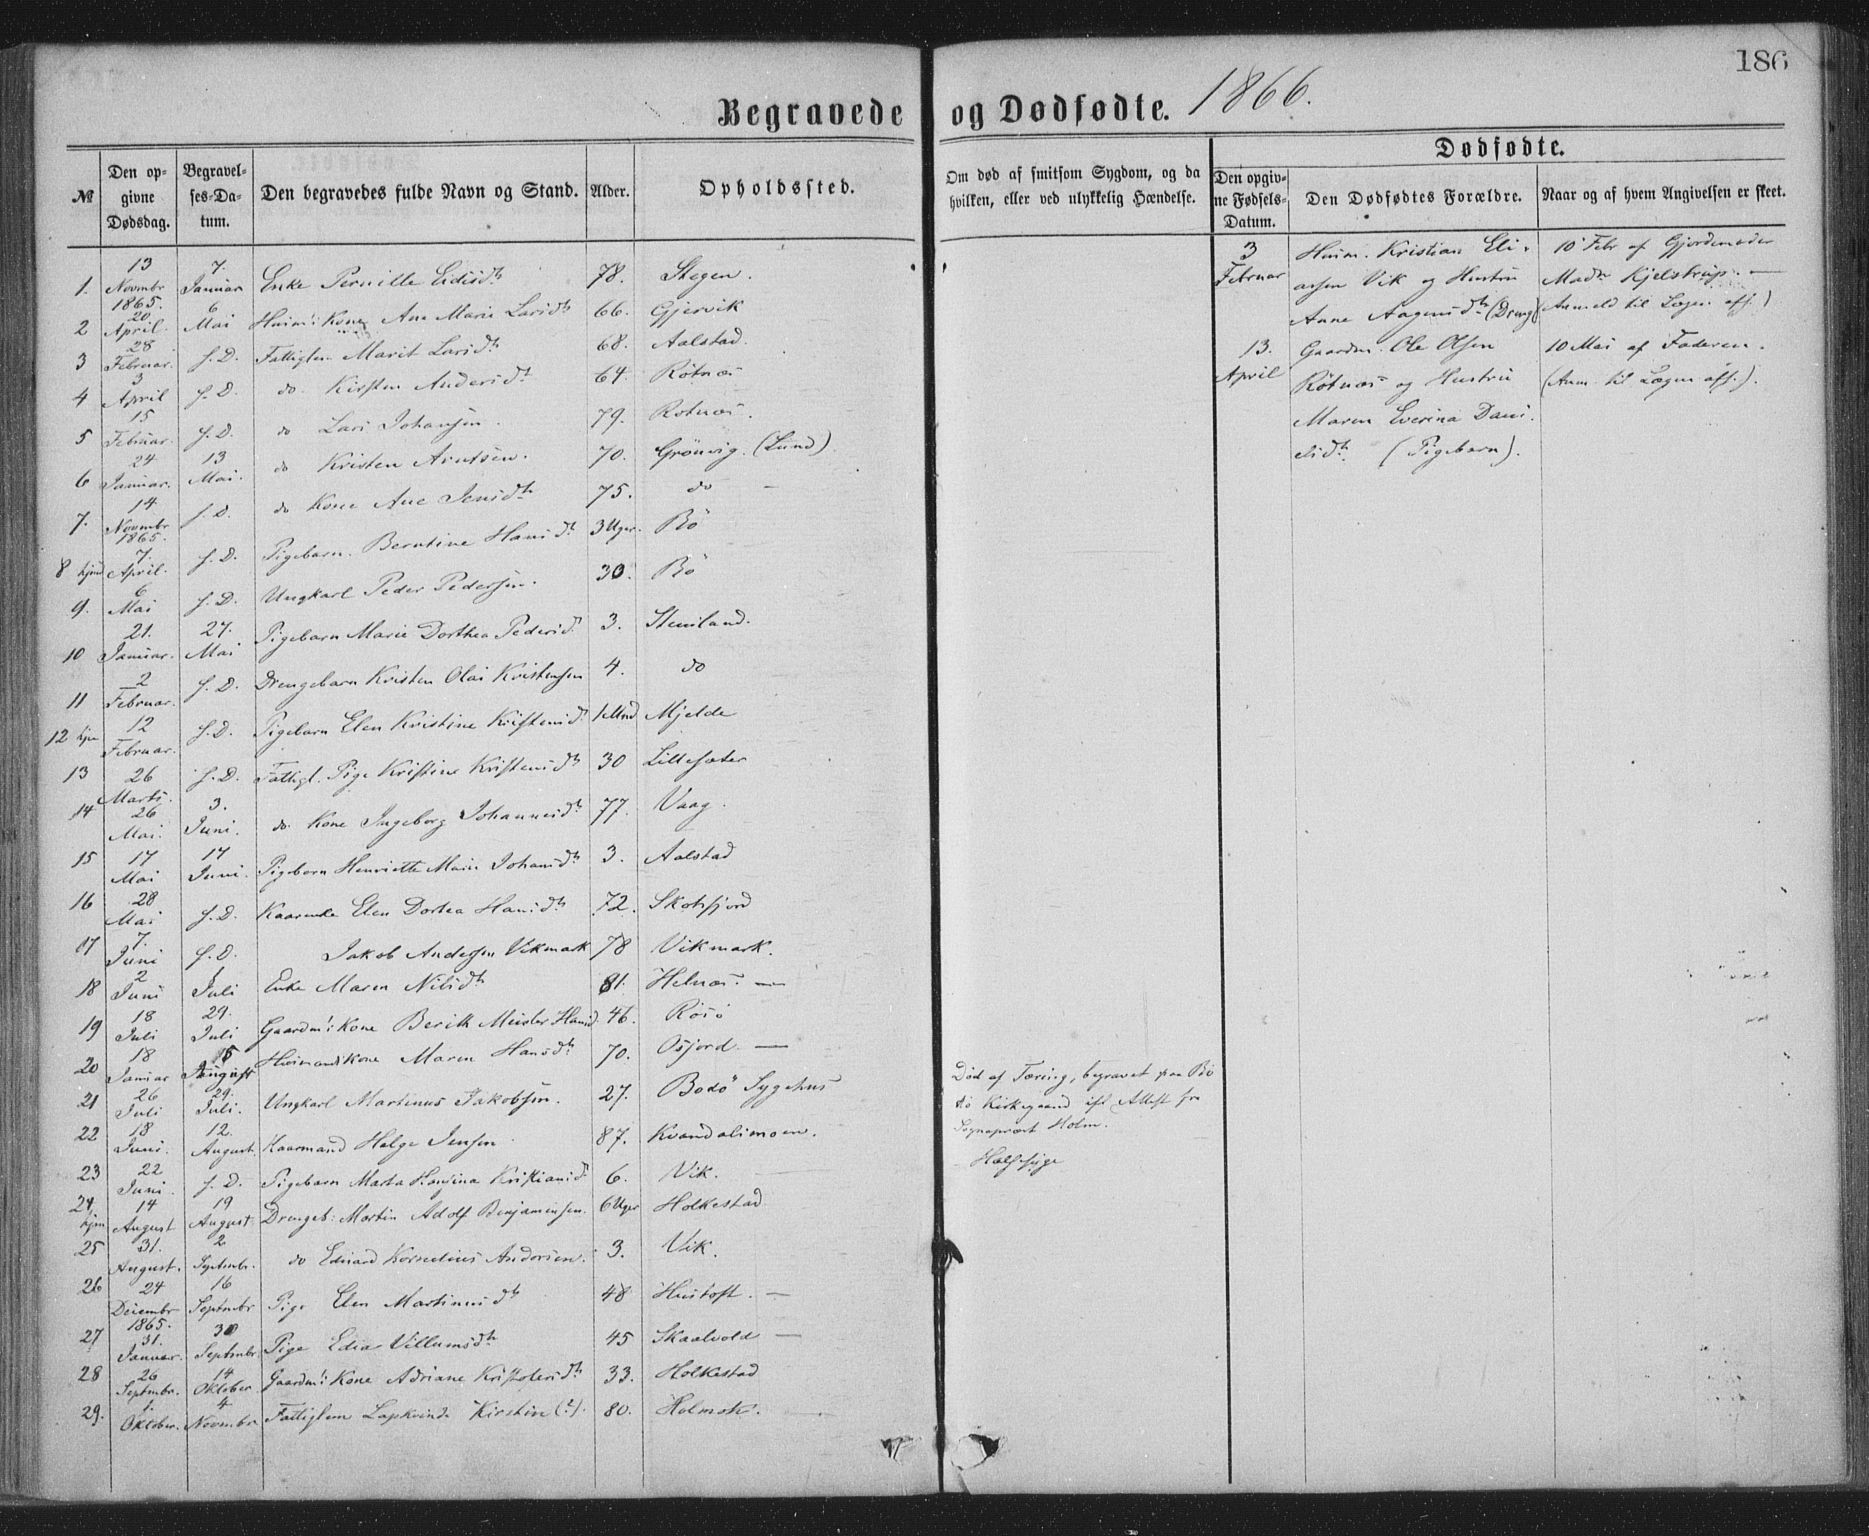 186
Begravede og Dødfødte. 1866.
Dødfødte.
№
Den opgivne Dødsdag.
Begravelses-Datum.
Den begravedes fulde Navn og Stand.
Alder.
Opholdssted.
Om død af smitsom Sygdom, og da hvilken, eller ved ulykkelig Hændelse.
Den opgivne Fødsels-Datum.
Den Dødfødtes Forældre.
Naar og af hvem Angivelsen er skeet.
1. 13 Novmbr 1865. 7. Januar Enke Pernille Eidisdtr 78. Stegen.
2 20. April 6 Mai Huusm: Kone Ane Marie Larsdtr 66. Gjervik
3 28 Februar. s. D. Fattiglem Marit Larsdtr 68. Aalstad.
4 3 April s. D. do. Kirsten Andersdtr 64. Røtnæs
5 15 Februar. s. D. do Lars Johansen. 79. Rotnæs.
6 24 Januar. 13 Mai. do Kristen Arntsen. 70. Grønvig. (Lund)
7. 14 Novmbr 1865. s. D. do Kone Ane Jensdtr 75. do
8 hjmd 7. April. s. D. Pigebarn. Berntine Hansdtr 3 Uger. Bø
9. 6 Mai s. D. Ungkarl Peder Pedersen. 30. Bø
10 21. Januar. 27. Mai Pigebarn Marie Dorthea Pedersd. 3. Stensland.
11 2 Februar. s. D. Drengebarn Kristen Olai Kristensen 4. do
12 hjm 12 Februar. s. D. Pigebarn Elen Kristine Kristensd. 1 Mnd Mjelde
13 26 Marts. s. D. Fattigl. Pige Kristine Kristensdtr 30 Lillesæter
14 26 Mai. 3. Juni. do. Kone Ingeborg Johannesdtr 77. Vaag.
15 17 Mai 17 Juni. Pigebarn Henriette Marie Johansdtr 3. Aalstad
16 28 Mai s. D. Kaarenke Elen Dortea Hansdtr 72. Skotsfjord
17 7. Juni s. D. Jakob Andersen Vikmark 78 Vikmark.
18 2 Juni Juli Enke Maren Nilsdtr 81. Helnæs.
19 18 Juli 29. Juli Gaardm: Kone Berith Meisler Hansd. 46. Røsø
20 18 Januar 5 August Huusmands Kone Maren Hansdtr 70. Osfjord.
21 26 Juli 29. Juli. Ungkarl Martinus Jakobsen. 27. Bodø Sygehus
Død af Tæring, begravet paa Bo
dø Kirkegaard ifl. Attest fra
Sognepræst Holm.
22 18 Juni. 12. August. Kaarmand Helge Jensen. 87. Kvandalsmoen.
23 22 Juni. s. D. Pigebarn Marta Hansina Kristiansd. 6. Vik.
Halssyge
24. hjm 14 August 19 August. Drengeb: Martin Adolf Benjaminsen. 6 Uger Holkestad
25 31. August. 2 Septmbr. do Eduard Kornelius Andersen. 3. Vik.
26 24 Decembr 1865. 16 Septmbr Pige Elen Martinusdtr 48 Hustoft.
27 31. Januar. 30 Septmbr. Pige Edia Villumsdtr 45 Skaalvold
28 26 Septmbr. 14 Oktober Gaardm: Kone Adriane Kristofersdtr 33. Holkestad
29. 1. Oktober. 4 Novmbr Fattiglem Lapkvinde Kirstin (?). 80. Holmok.
3 Februar
Huusm. Kristian Eli-
assen Vik og Hustru
Anne Aagensdtr (Dreng)
10 Febr af Gjordemoder
Madm Kjelstrup.
(Anmeld til Lægen aff.)
13. April
Gaardm. Ole Olsen
Røtnæs og Hustru
Maren Everina Dani-
elsdtr. (Pigebarn).
10 Mai af Faderen.
(Anm. til Lægen aff.).